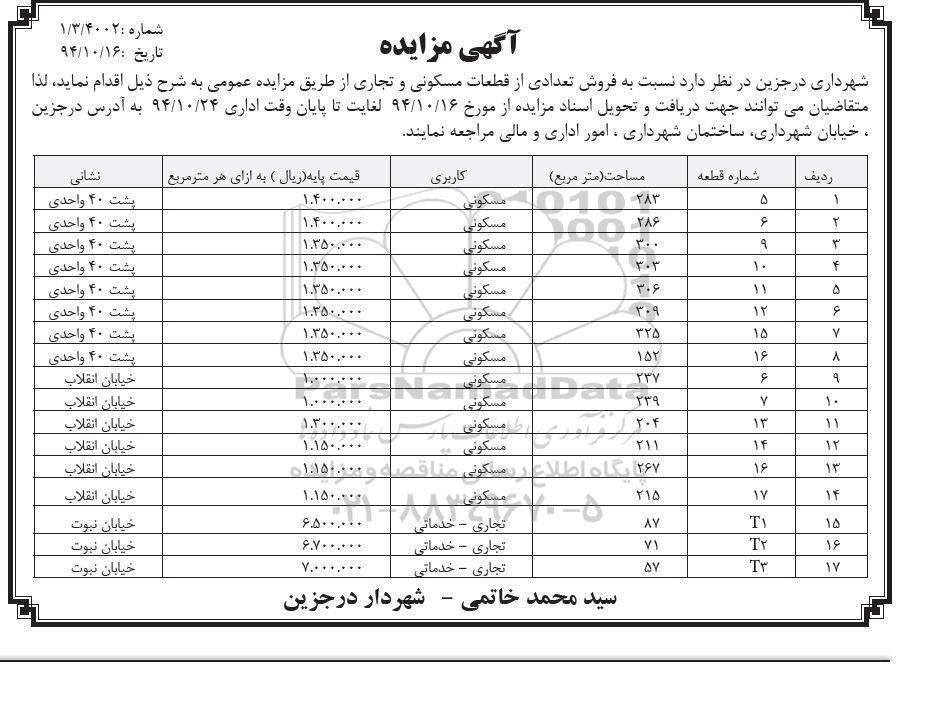 شماره :۱/۳/۴۰۰۲
تاریخ :۹۴/۱۰/۱۶
آگهی مزایده
شهرداری درجزین در نظر دارد نسبت به فروش تعدادی از قطعات مسکونی و تجاری از طریق مزایده عمومی به شرح ذیل اقدام نماید، لذا
متقاضیان می توانند جهت دریافت و تحویل اسناد مزایده از مورخ ۹۴/۱۰/۱۶ لغایت تا پایان وقت اداری ۹۴/۱۰/۲۴ به آدرس درجزین
، خیابان شهرداری، ساختمان شهرداری ، امور اداری و مالی مراجعه نمایند.
ردیف شماره قطعه مساحت(متر مربع) کاربری قیمت پایه(ریال ) به ازای هر مترمربع نشانی
۱ ۵ ۲۸۳ مسکونی ۱.۴۰۰.۰۰۰ پشت ۴۰ واحدی
۲ ۶ ۲۸۶ مسکونی ۱.۴۰۰.۰۰۰ پشت ۴۰ واحدی
۳ ۹ ۳۰۰ مسکونی ۱.۳۵۰.۰۰۰ پشت ۴۰ واحدی
۴ ۱۰ ۳۰۳ مسکونی ۱.۳۵۰.۰۰۰ پشت ۴۰ واحدی
۵ ۱۱ ۳۰۶ مسکونی ۱.۳۵۰.۰۰۰ پشت ۴۰ واحدی
۶ ۱۲ ۳۰۹ مسکونی ۱.۳۵۰.۰۰۰ پشت ۴۰ واحدی
۷ ۱۵ ۳۲۵ مسکونی ۱.۳۵۰.۰۰۰ پشت ۴۰ واحدی
۸ ۱۶ ۱۵۲ مسکونی ۱.۳۵۰.۰۰۰ پشت ۴۰ واحدی
۹ ۶ ۲۳۷ مسکونی ۱.۰۰۰.۰۰۰ خیابان انقلاب
۱۰ ۷ ۲۳۹ مسکونی ۱.۰۰۰.۰۰۰ خیابان انقلاب
۱۱ ۱۳ ۲۰۴ مسکونی ۱.۳۰۰.۰۰۰ خیابان انقلاب
۱۲ ۱۴ ۲۱۱ مسکونی ۱.۱۵۰.۰۰۰ خیابان انقلاب
۱۳ ۱۶ ۲۶۷ مسکونی ۱.۱۵۰.۰۰۰ خیابان انقلاب
۱۴ ۱۷ ۲۱۵ مسکونی ۱.۱۵۰.۰۰۰ خیابان انقلاب
۱۵ T۱ ۸۷ تجاری – خدماتی ۶.۵۰۰.۰۰۰ خیابان نبوت
۱۶ T۲ ۷۱ تجاری – خدماتی ۶.۷۰۰.۰۰۰ خیابان نبوت
۱۷ T۳ ۵۷ تجاری – خدماتی ۷.۰۰۰.۰۰۰ خیابان نبوت
سید محمد خاتمی - شهردار درجزین
ParsNamadData
پایگاه اطلاع رسانی مناقصه و مزایده
۰۲۱-۸۸۳۴۹۶۷۰-۵